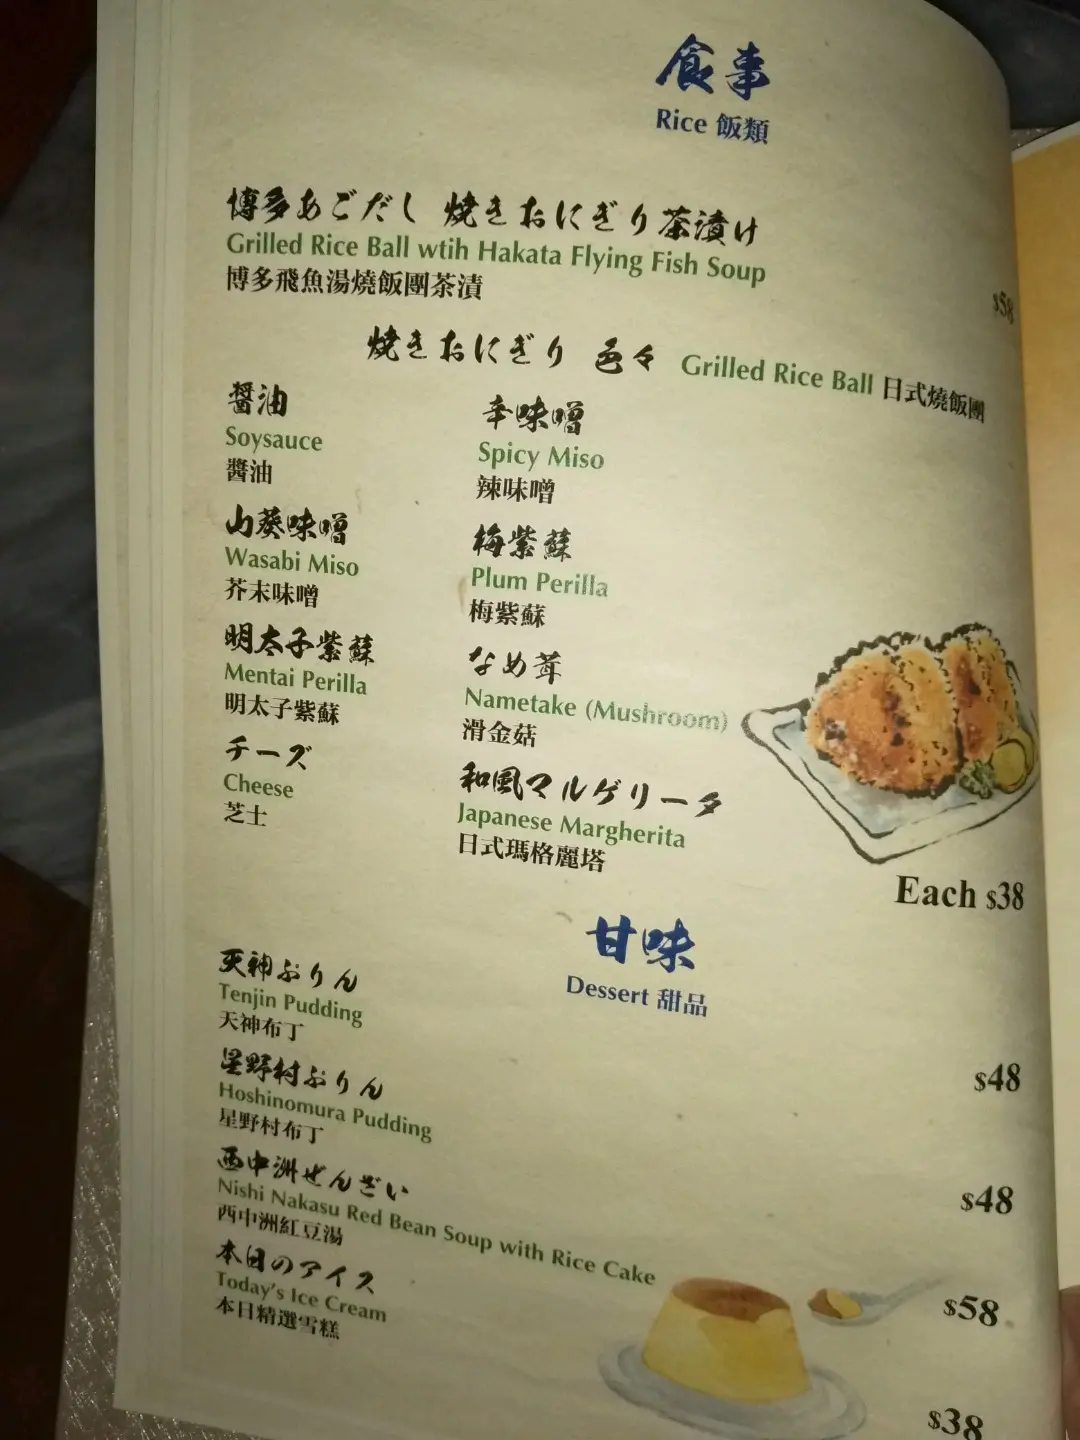 食事
Rice 飯類
博多あごだし 焼きおにぎり茶漬け
Grilled Rice Ball wtih Hakata Flying Fish Soup
博多飛魚湯燒飯團茶漬
$58
焼きおにぎり 色々 Grilled Rice Ball 日式燒飯團
醤油
Soysauce
醬油
辛味噌
Spicy Miso
辣味噌
山葵味噌
Wasabi Miso
芥末味噌
梅紫蘇
Plum Perilla
梅紫蘇
明太子紫蘇
Mentai Perilla
明太子紫蘇
なめ茸
Nametake (Mushroom)
滑金菇
チーズ
Cheese
芝士
和風マルゲリータ
Japanese Margherita
日式瑪格麗塔
Each $38
甘味
Dessert 甜品
天神ぷりん
Tenjin Pudding
天神布丁
$48
星野村ぷりん
Hoshinomura Pudding
星野村布丁
$48
西中洲ぜんざい
Nishi Nakasu Red Bean Soup with Rice Cake
西中洲紅豆湯
$58
本日のアイス
Today's Ice Cream
本日精選雪糕
$38